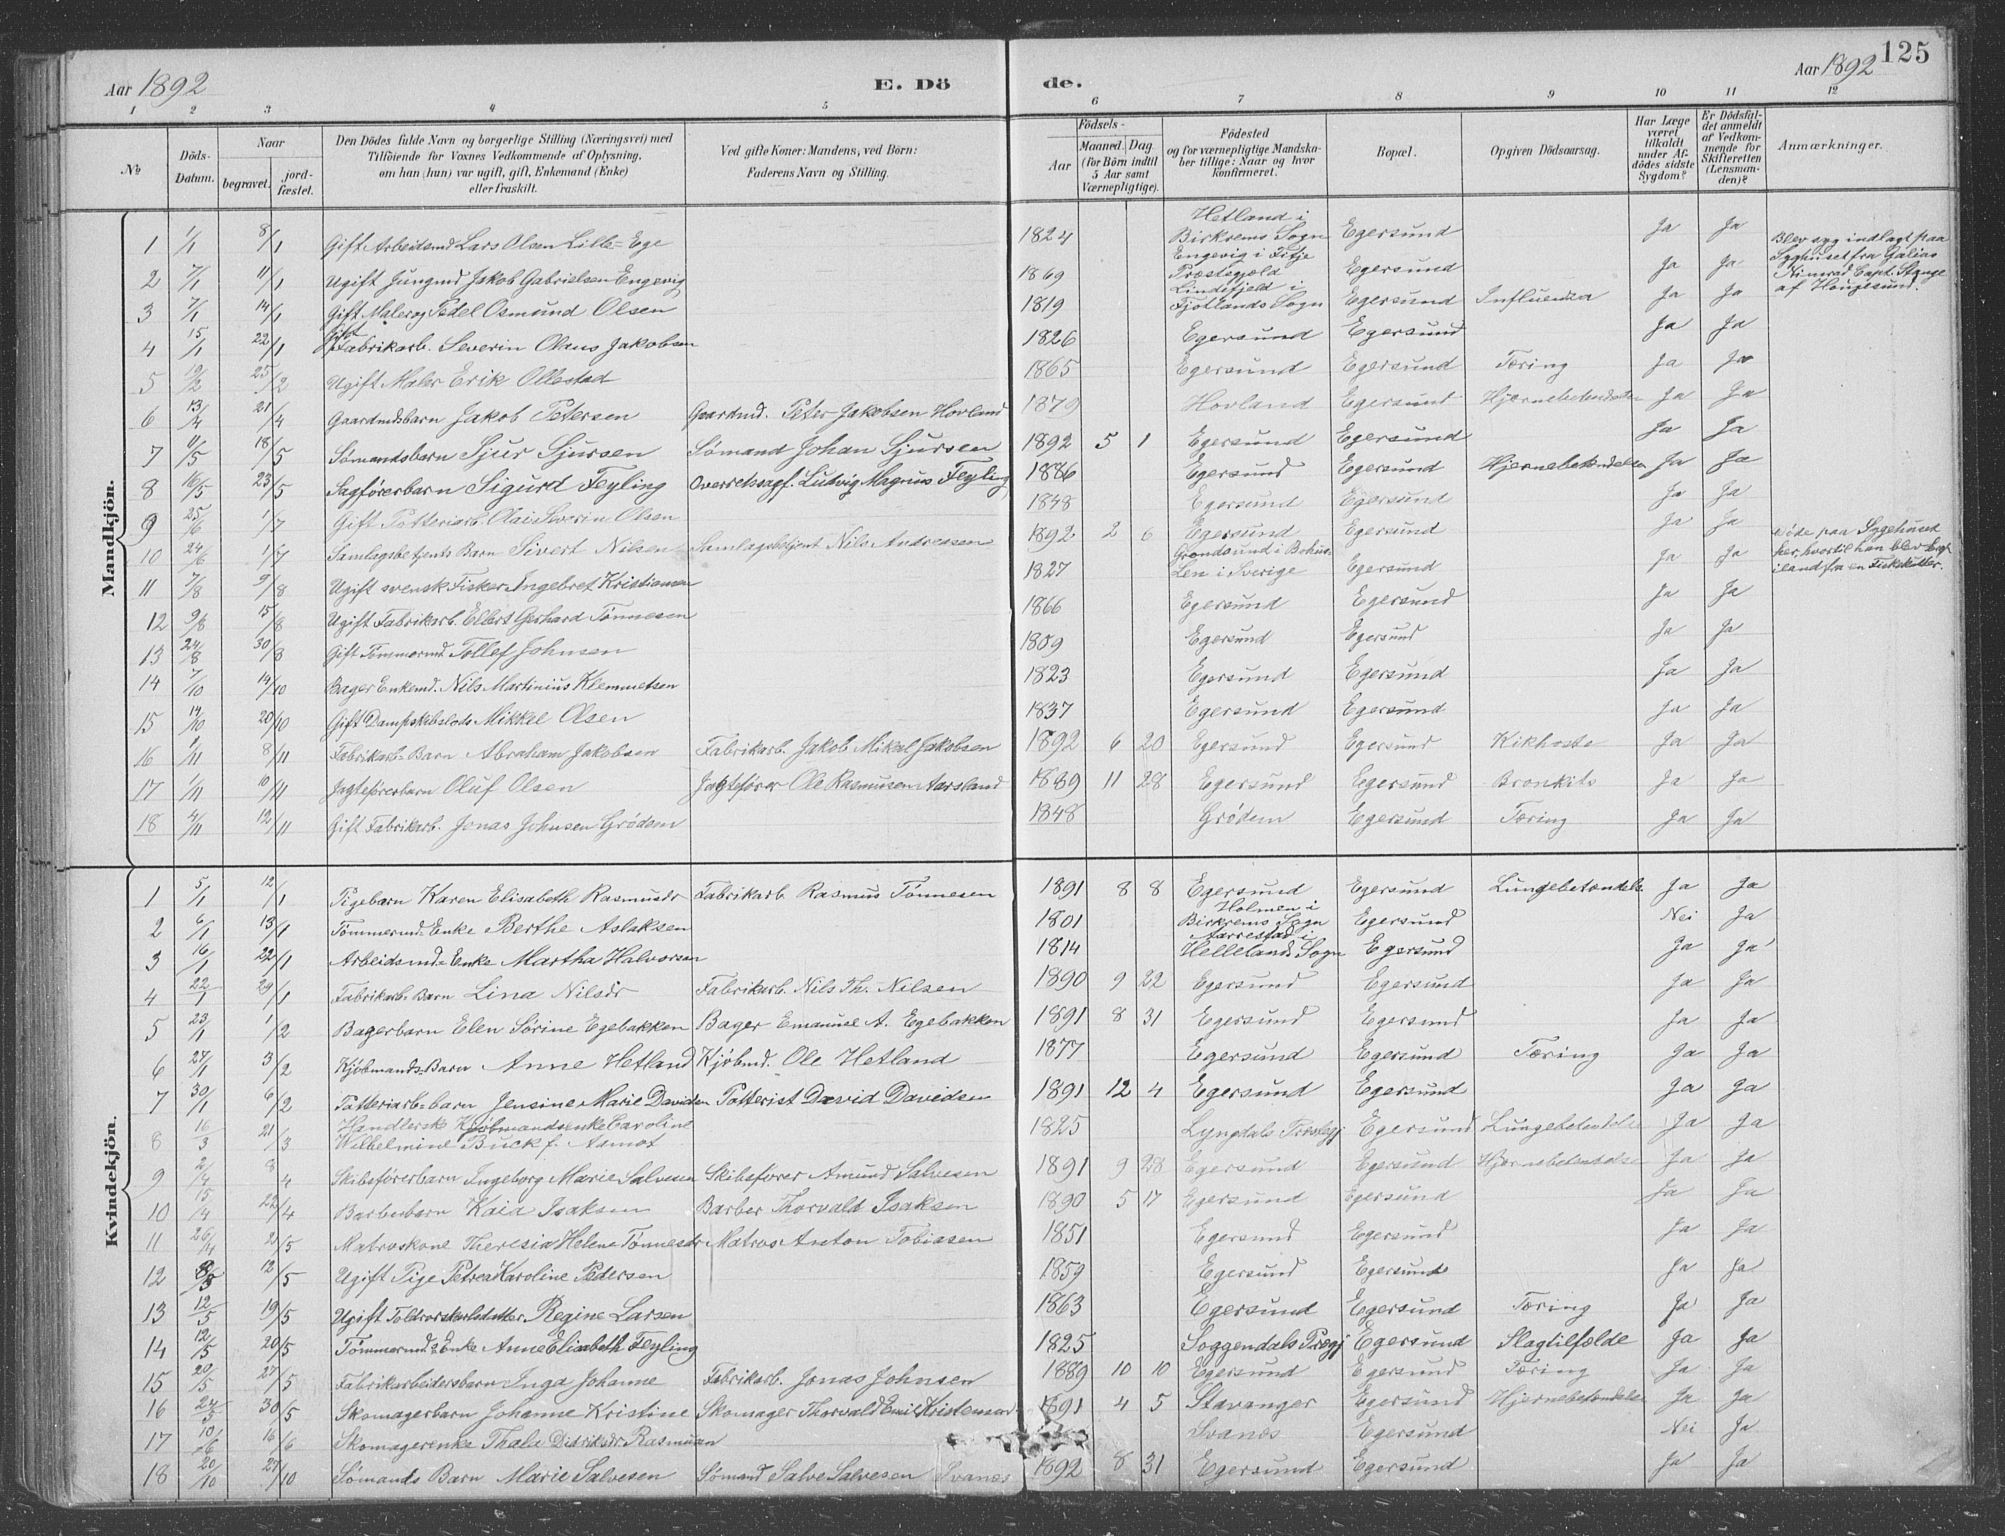 Aar 1892 E. Dö de. Aar 1892 125
1 2 3 4 5 6 7 8 9 10 11 12
№ Döds-Datum. Naar begravet. jord-fæstet. Den Dödes fulde Navn og borgerlige Stilling (Næringsvei) med Tilföiende for Voxnes Vedkommende af Oplysning, om han (hun) var ugift, gift, Enkemand (Enke) eller fraskilt. Ved gifte Koner: Mandens, ved Börn: Faderens Navn og Stilling. Födsels- Aar Maaned. Dag (for Börn indtil 5 Aar samt Værnepligtige). Födested og for værnepligtige Mandskaber tillige: Naar og hvor konfirmeret. Bopæl. Opgiven Dödsaarsag. Har Læge været tilkaldt under Afdödes sidste Sygdom? Er Dödsfaldet anmeldt af Vedkommende for Skifteretten (Lensmanden)? Anmærkninger.
Mandkjön.
1 1/1 8/1 Gift Arbeidsmd Lars Olsen Lille-Ege 1824 Hetland i Birkrems Sogn Egersund Ja Ja
2 7/1 11/1 Ugift Jungmd Jakob Gabrielsen Engevig 1869 Engevig i Fitje Præstegjeld Egersund Ja Ja Blev syg indlagt paa Syghuset fra Galias Nimrod Capt. Stange af Hougesund.
3 7/1 14/1 Gift Maler og Pedel Osmund Olsen 1819 Lindefjeld i Fjotlands Sogn Egersund Influenza Ja Ja
4 15/1 22/1 Gift Fabrikarb. Severin Olaus Jakobsen 1826 Egersund Egersund Ja Ja
5 19/2 25/2 Ugift Maler Erik Ollestad 1865 Egersund Egersund Tæring Ja Ja
6 13/4 21/4 Gaardmdsbarn Jakob Petersen Gaardmd. Peter Jakobsen Hovland 1879 Hovland Egersund Hjernebetændelse Ja Ja
7 11/5 18/5 Sømandsbarn Sjur Sjursen Sømand Johan Sjursen 1892 5 1 Egersund Egersund Ja Ja
8 16/5 23/5 Sagførerbarn Sigurd Feyling Overretssagf. Ludvig Magnus Feyling 1886 Egersund Egersund Hjernebetændelse Ja Ja
9 25/6 1/7 Gift Potteriarb. Olai Severin Olsen 1848 Egersund Egersund Ja Ja
10 24/6 1/7 Samlagsbetjents Barn Sivert Nilsen Samlagsbetjent Nils Andreassen 1892 2 6 Egersund Egersund Ja Ja
11 7/8 9/8 Ugift svensk Fisker Ingebret Kristiansen 1827 Grundsund i Bohus Len i Sverige Egersund Ja Ja Døde paa Sygehuset her, hvortil han blev bragt iland fra en Fiskekutter.
12 9/8 15/8 Ugift Fabrikarb. Elbert Gerhard Tönnesen 1866 Egersund Egersund Ja Ja
13 24/8 30/8 Gift Tømmermd. Tollef Johnsen 1809 Egersund Egersund Ja Ja
14 7/10 14/10 Bager Enkemd. Nils Martinius Klemmetsen 1823 Egersund Egersund Ja Ja
15 14/10 20/10 Gift Dampskibslods Mikkel Olsen 1837 Egersund Egersund Ja Ja
16 1/11 8/11 Fabrikarb-Barn Abraham Jakobsen Fabrikarb. Jakob Mikal Jakobsen 1892 6 20 Egersund Egersund Kikhoste Ja Ja
17 1/11 10/11 Jagteførerbarn Oluf Olsen Jagtefører Ole Rasmussen Aarsland 1889 11 28 Egersund Egersund Bronkits Ja Ja
18 4/11 12/11 Gift Fabrikarb. Jonas Johnsen Grødem 1848 Grødem Egersund Tæring Ja Ja
Kvindekjön.
1 5/1 12/1 Pigebarn Karen Elisabeth Rasmusdr Fabrikarb. Rasmus Tönnesen 1891 8 8 Egersund Egersund Lungebetændelse Ja Ja
2 6/1 13/1 Tömmermd-Enke Berthe Aslaksen 1801 Holmen i Birkrems Sogn Egersund Nei Ja
3 16/1 22/1 Arbeidsmd-Enke Martha Halvorsen 1814 Aarrestad i Hellelands Sogn Egersund Ja Ja
4 22/1 29/1 Fabrikarb-Barn Lina Nilsdr Fabrikarb. Nils Th. Nilsen 1890 9 22 Egersund Egersund Ja Ja
5 23/1 1/2 Bagerbarn Elen Sörine Egebakken Bager Emanuel A. Egebakken 1891 8 31 Egersund Egersund Ja Ja
6 27/1 3/2 Kjøbmands-Barn Anne Hetland Kjöbmd. Ole Hetland 1877 Egersund Egersund Tæring Ja Ja
7 30/1 6/2 Potteriarb-barn Jensine Marie Davidsen Potterist David Davidsen 1891 12 4 Egersund Egersund Ja Ja
8 16/3 21/3 Handlerske Kjøbmandsenke Caroline Wilhelmine Buck f. Asmot 1825 Lyngdals Egersund Lungebetændelse Ja Ja
9 2/4 8/4 Skibsførerbarn Ingeborg Marie Salvesen Skibsfører Amund Salvesen 1891 9 28 Egersund Egersund Hjernebetændelse Ja Ja
10 15/4 22/4 Barberbarn Kaia Isaksen Barber Thorvald Isaksen 1890 5 17 Egersund Egersund Ja Ja
11 26/4 2/5 Matroskone Theresia Helene Tønnesdr Matros Anton Tobiasen 1851 Egersund Egersund Ja Ja
12 8/5 12/5 Ugift Pige Petrea Karoline Pedersen 1859 Egersund Egersund Ja Ja
13 12/5 19/5 Ugift Toldrorskarlsdatter Regine Larsen 1863 Egersund Egersund Tæring Ja Ja
14 12/5 20/5 Tömmermd's Enke Anne Elisabeth Feyling 1825 Soggendals Prægj Egersund Slagtilfælde Ja Ja
15 20/5 27/5 Fabrikarbeidersbarn Inga Johanne Fabrikarb. Jonas Johnsen 1889 10 10 Egersund Egersund Tæring Ja Ja
16 24/5 30/5 Skomagerbarn Johanne Kristine Skomager Thorvald Emil Kristensen 1891 4 5 Stavanger Egersund Hjernebetændelse Ja Ja
17 10/6 16/6 Skomagerenke Thale Didriksdr Rasmussen Svanæs Egersund Nei Ja
18 20/10 27/10 Sömands Barn Marie Salvesen Sömand Salve Salvesen Svanæs 1892 8 31 Egersund Egersund Ja Ja